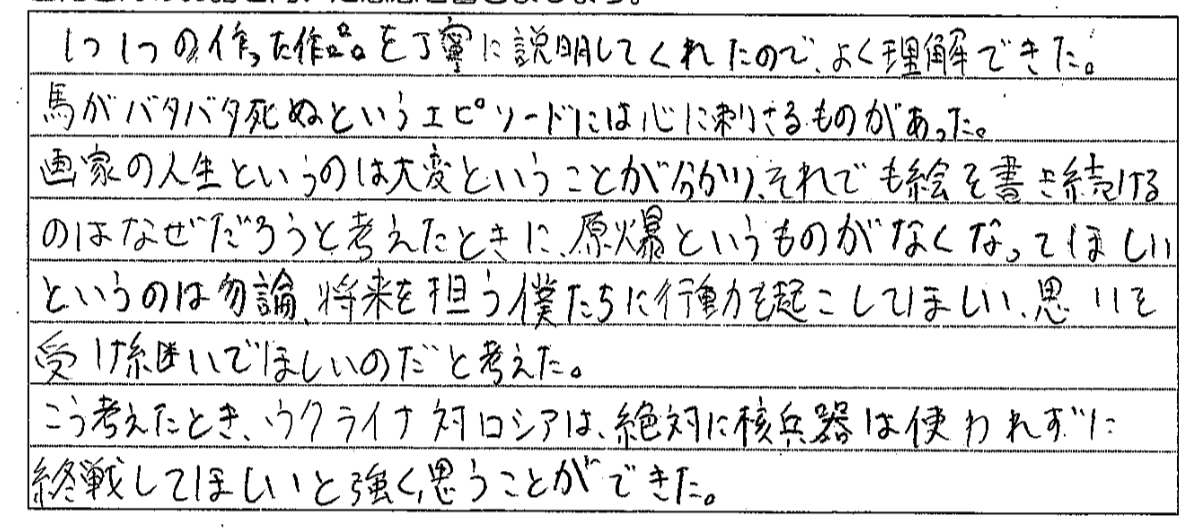 1つ1つの作った作品を丁寧に説明してくれたので、よく理解できた。
馬がバタバタ死ぬというエピソードには心に刺さるものがあった。
画家の人生というのは大変ということが分かり、それでも絵を書き続ける
のはなぜだろうと考えたときに、原爆というものがなくなってほしい
というのは勿論、将来を担う僕たちに行動を起こしてほしい、思いを
受け継いでほしいのだと考えた。
こう考えたとき、ウクライナ対ロシアは、絶対に核兵器は使われずに
終戦してほしいと強く思うことができた。